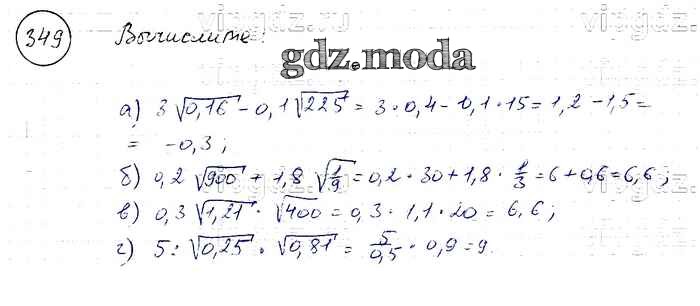 349 Вычислите:
gdz.moda
а) 3√0,16 - 0,1√225 = 3·0,4 - 0,1·15 = 1,2 - 1,5 =
= -0,3;
б) 0,2√900 + 1,8√1/9 = 0,2·30 + 1,8·1/3 = 6 + 0,6 = 6,6;
в) 0,3√1,21·√400 = 0,3·1,1·20 = 6,6;
г) 5:√0,25·√0,81 = 5/0,5·0,9 = 9.